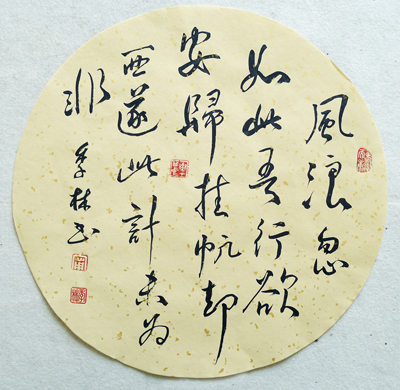 風浪忽
如此吾行欲
安歸挂帆却
西邁此計未为
非
季林书